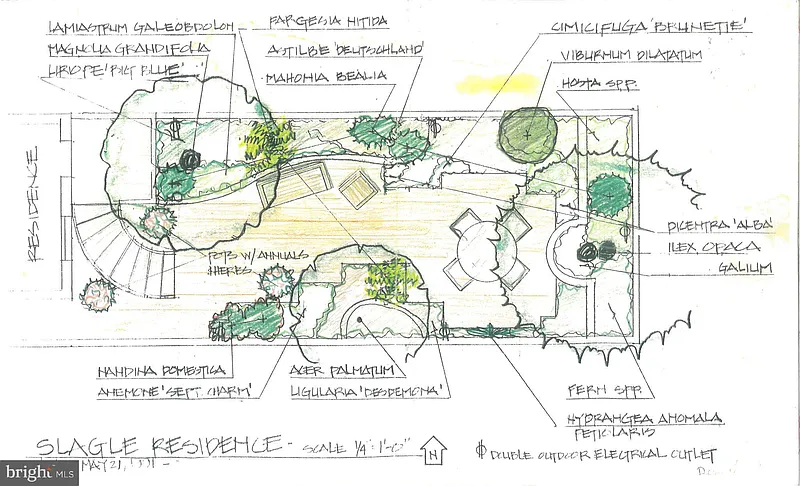 LAMIASTRUM GALEOBDOLON
MAGNOLIA GRANDIFOLIA
LIRIOPE 'BIG BLUE'
FARGESIA NITIDA
ASTILBE 'DEUTSCHLAND'
MAHONIA BEALIA
CIMICIFUGA 'BRUNETTE'
VIBURNUM DILATATUM
HOSTA SPP.
RESIDENCE
POTS W/ ANNUALS
& HERBS
DICENTRA 'ALBA'
ILEX OPACA
GALIUM
NANDINA DOMESTICA
ANEMONE 'SEPT. CHARM'
ACER PALMATUM
LIGULARIA 'DESDEMONA'
FERN SPP.
HYDRANGEA ANOMALA
PETIOLARIS
SLAGLE RESIDENCE - SCALE 1/4" : 1'-0"
N
DOUBLE OUTDOOR ELECTRICAL OUTLET
MAY 21,
bright MLS